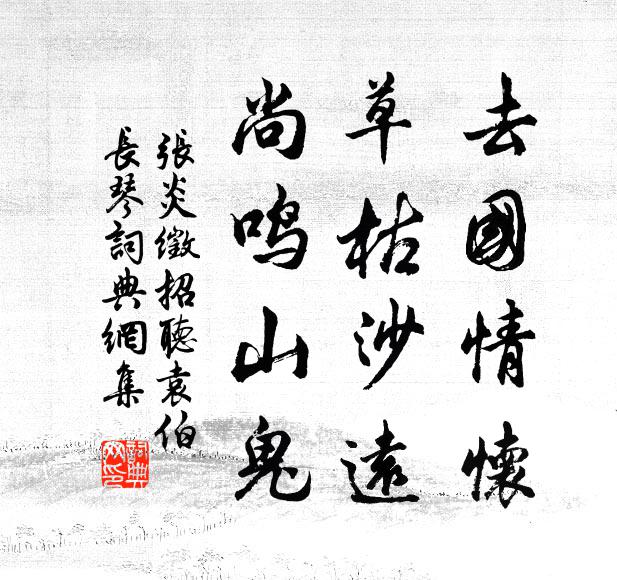 去國情懷
草枯沙遠
尚鳴山鬼
張炎徵招聽袁伯
長琴詞典網集
詞典網印